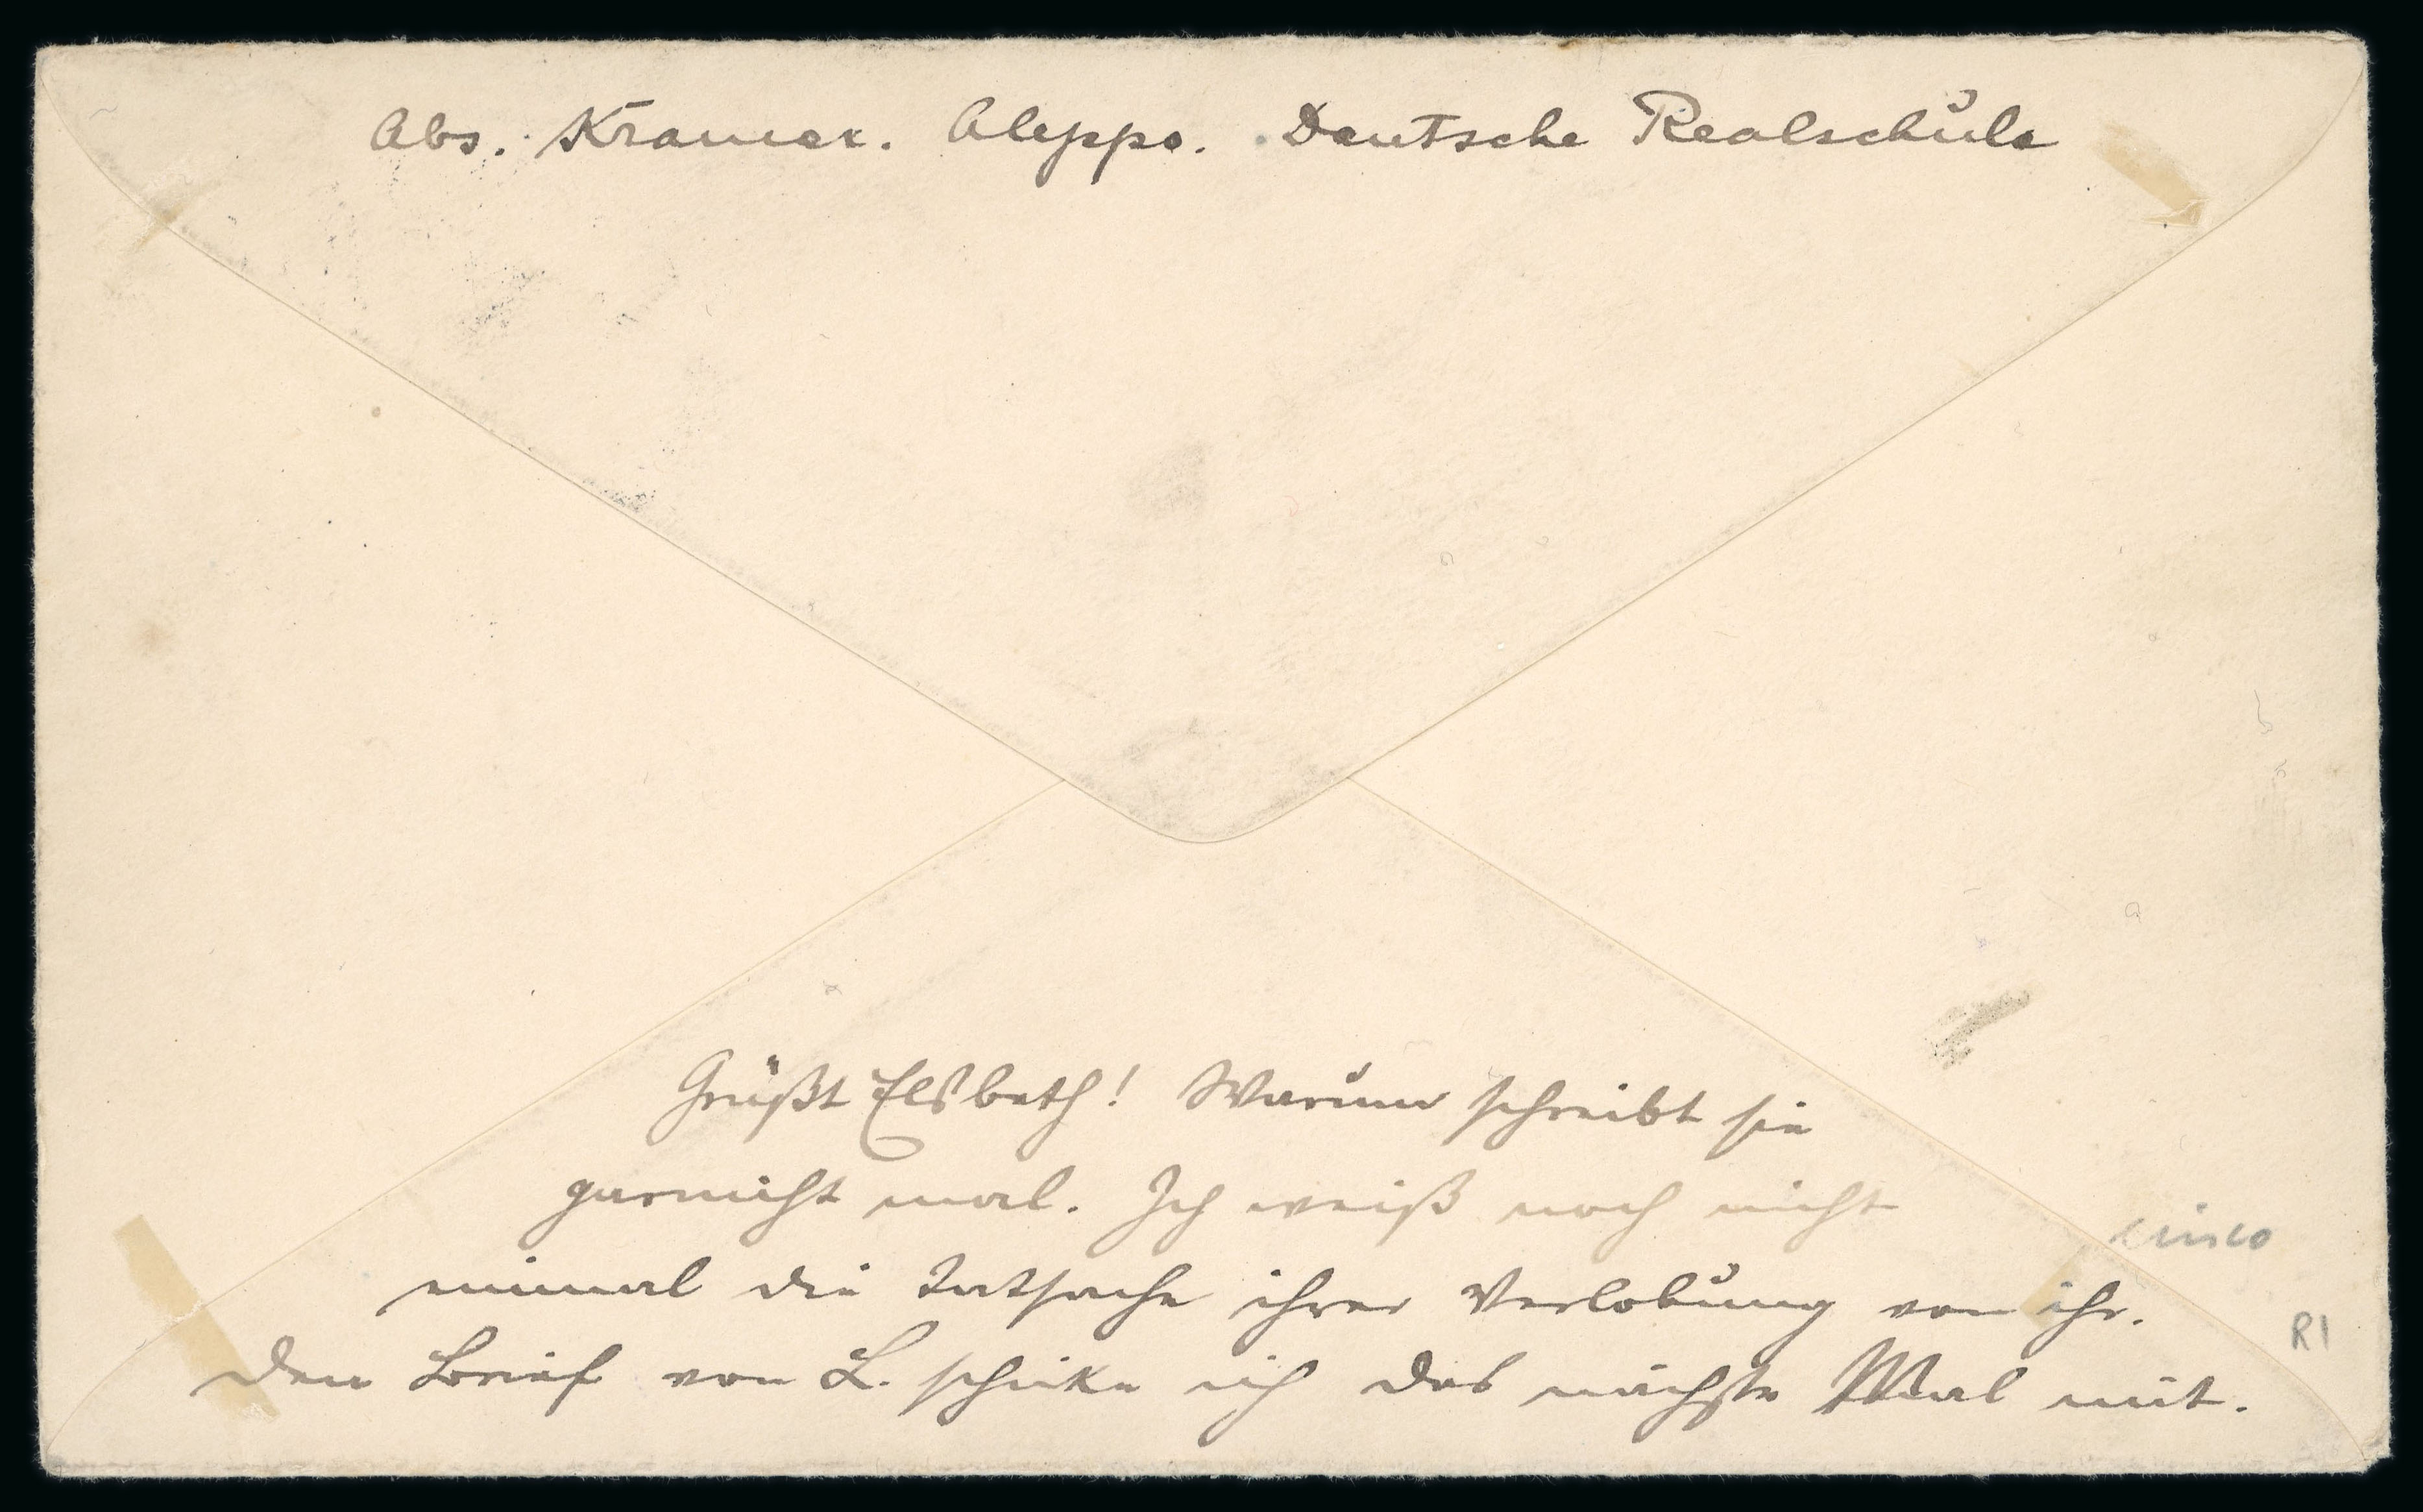 Abs. Kramer. Aleppo. Deutsche Realschule
Grüßt Elsbeth! Warum schreibt sie
garnicht mal. Ich weiß noch nicht
einmal die Tatsache ihrer Verlobung von ihr.
Den Brief von L. schicke ich das nächste Mal mit.
R1